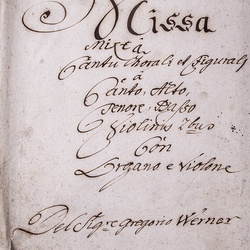 Missa
mixta
Cantu Chorali et figurali
à
Canto, Alto,
Tenore, Basso
Violinis 2bus
Con
Organo e violone
Del Sigre Gregorio Werner